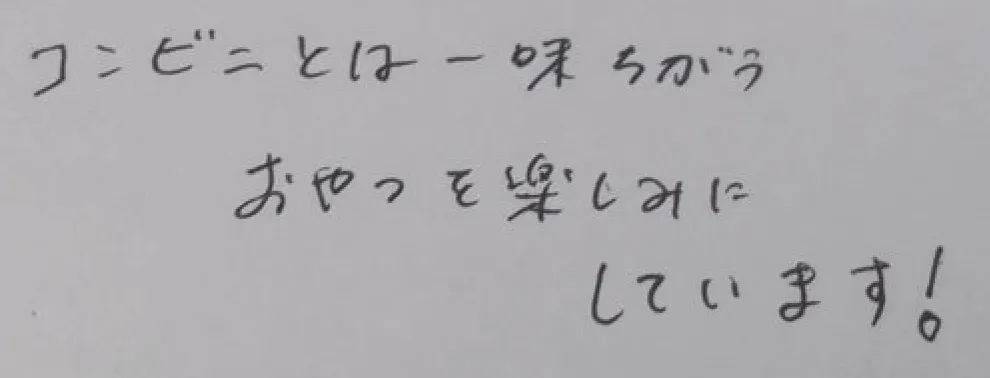 コンビニとは一味ちがう
おやつを楽しみに
しています!